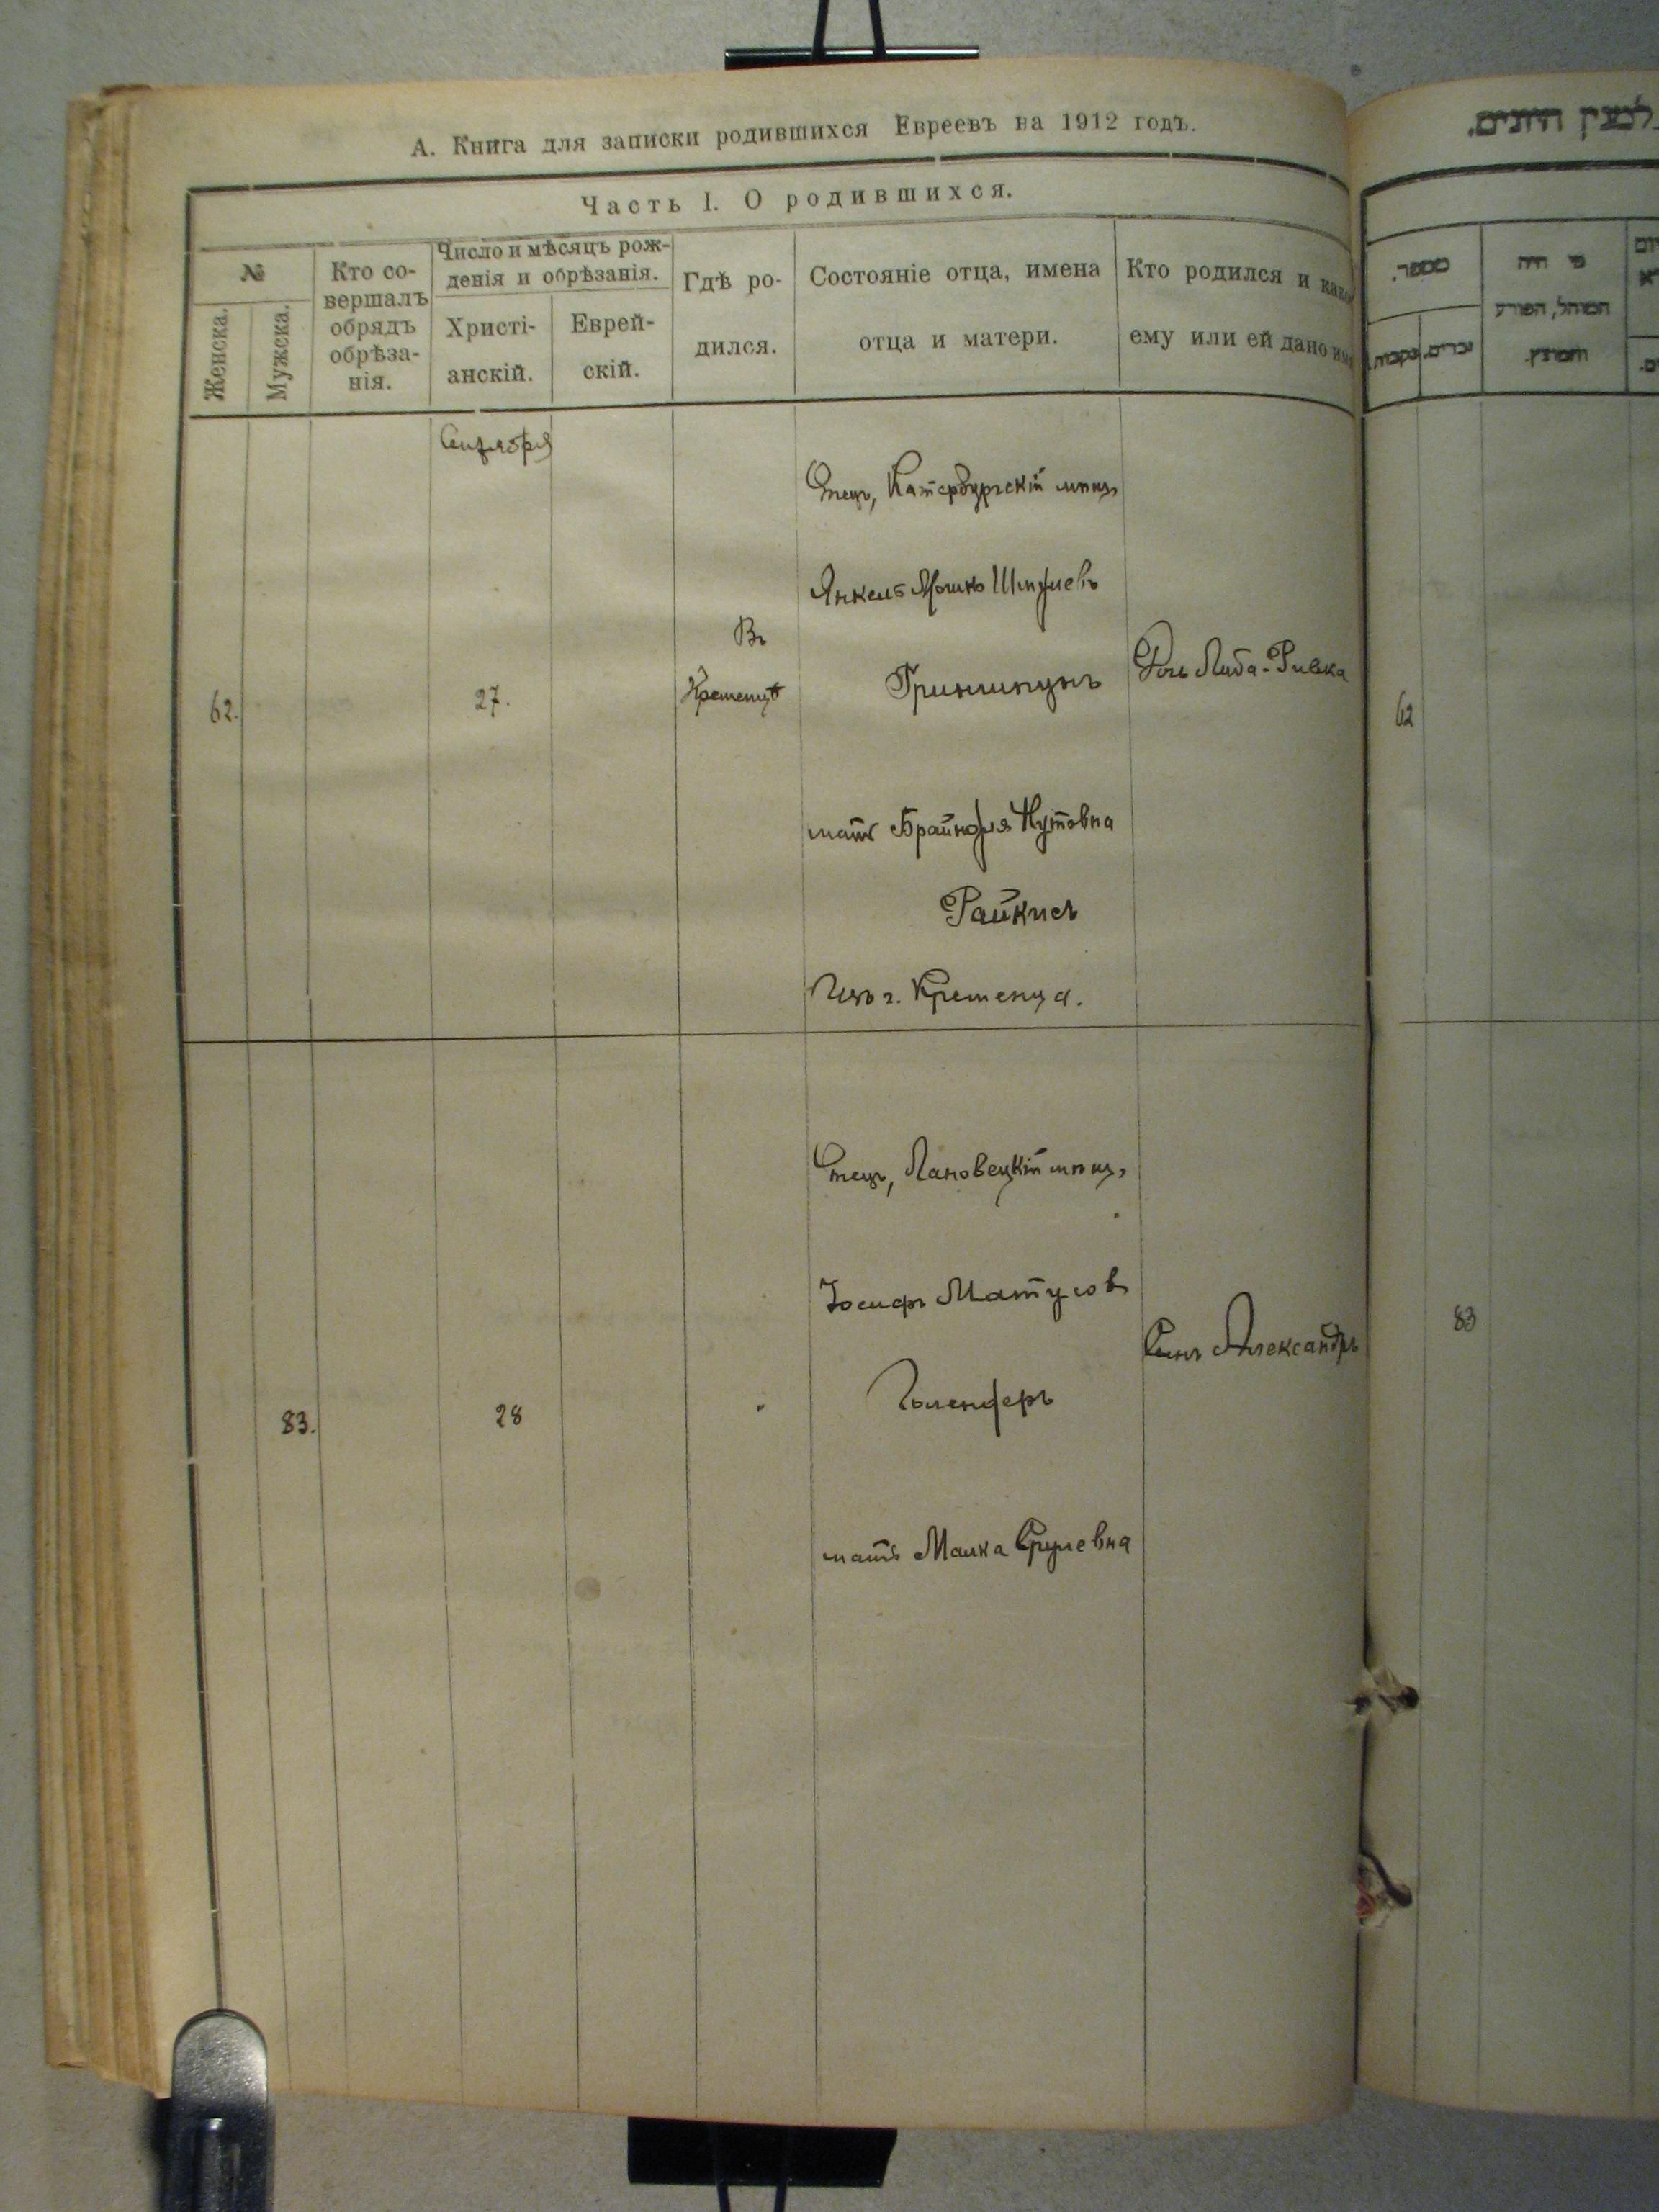 А. Книга для записки родившихся Евреевъ на 1912 годъ.
Часть I. О родившихся.
№
Женска.
Мужска.
Кто со-
вершалъ
обрядъ
обрѣза-
нія.
Число и мѣсяцъ рож-
денія и обрѣзанія.
Христі-
анскій.
Еврей-
скій.
Гдѣ ро-
дился.
Состояніе отца, имена
отца и матери.
Кто родился и како
ему или ей дано им
Сентября
62.
27.
Въ
Кременцѣ
Отецъ, Катербургскій мѣщ.
Янкель Мошко
Гринштейнъ
мать Брайндля Нутовна
Райкисъ
Изъ г. Кременца.
Дочь Либа-Ривка
83.
28
"
Отецъ, Лановецкій мѣщ.
Іосифъ Матусов
Голенферъ
мать Малка Срулевна
Сынъ Александръ
מספר.
נקבות.
זכרים.
מי היה
המוהל, הפורע
והמוצץ.
62
83